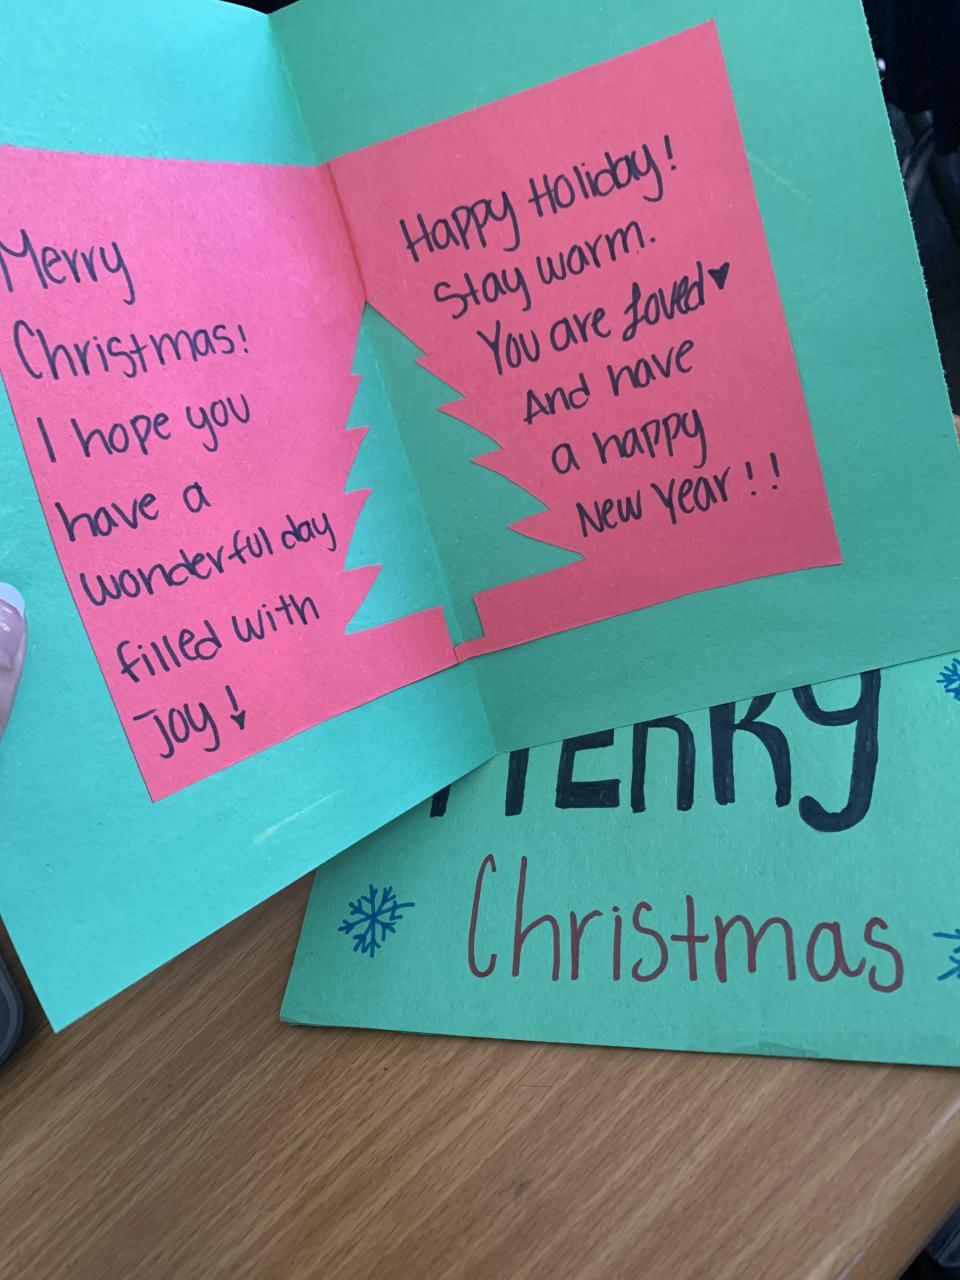 Merry
Christmas!
I hope you
have a
wonderful day
filled with
Joy!
Happy Holiday!
Stay warm.
You are Loved♥
And have
a happy
New Year!!
MERRY
Christmas